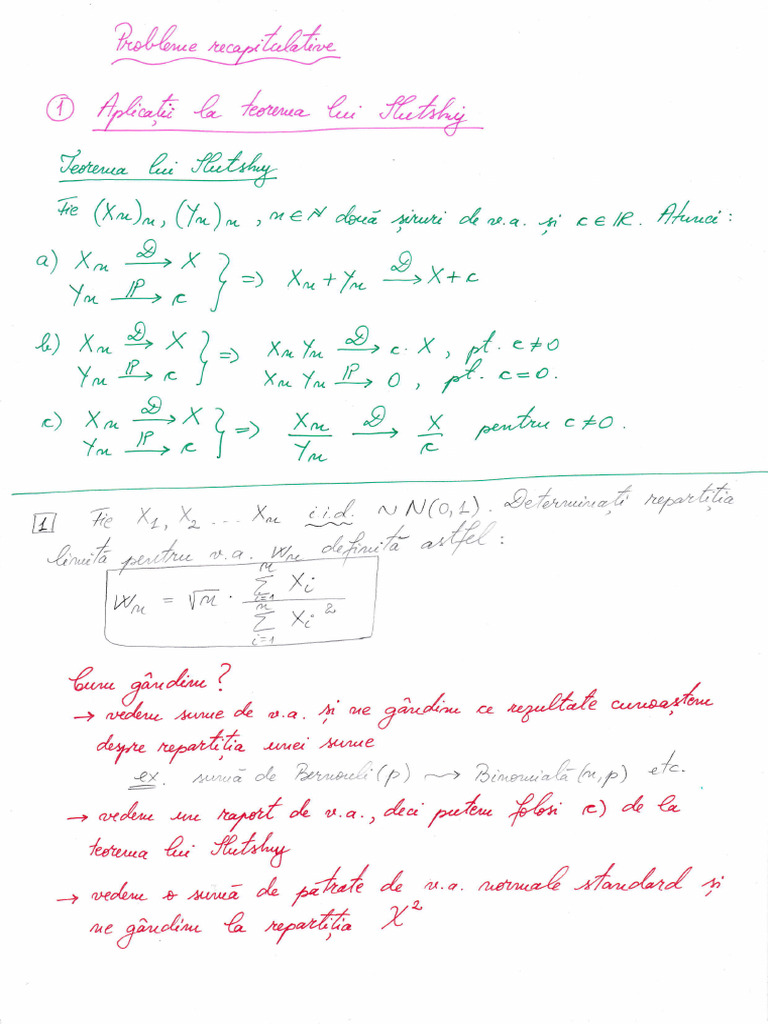 Probleme recapitulative
① Aplicații la teorema lui Slutsky
Teorema lui Slutsky
Fie (Xn)n, (Yn)n, n∈ℕ două șiruri de v.a. și c∈ℝ. Atunci:
a) Xn —D→ X
Yn —ℙ→ c } => Xn + Yn —D→ X + c
b) Xn —D→ X } => Xn Yn —D→ c·X, pt. c≠0
Yn —ℙ→ c   Xn Yn —ℙ→ 0, pt. c=0.
c) Xn —D→ X } => Xn/Yn —D→ X/c pentru c≠0.
Yn —ℙ→ c
1 Fie X1, X2 ... Xn i.i.d. ~ N(0,1). Determinați repartiția
limită pentru v.a. Wn definită astfel:
Wn = √n · ∑_{i=1}^{n} Xi / ∑_{i=1}^{n} Xi²
Cum gândim?
→ vedem sume de v.a. și ne gândim ce rezultate cunoaștem
despre repartiția unei sume
ex. sumă de Bernouli(p) ⇝ Binomială(n,p) etc.
→ vedem un raport de v.a., deci putem folosi c) de la
teorema lui Slutsky
→ vedem o sumă de pătrate de v.a. normale standard și
ne gândim la repartiția χ²